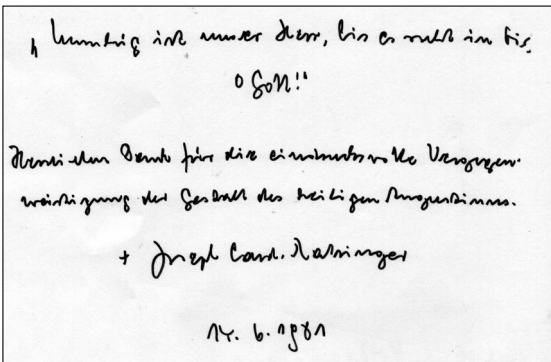 „Unruhig ist unser Herz, bis es ruht in Dir,
o Gott!"
Herzlichen Dank für die eindrucksvolle Vergegen-
wärtigung der Gestalt des heiligen Augustinus.
+ Joseph Card. Ratzinger
14. 6. 1981